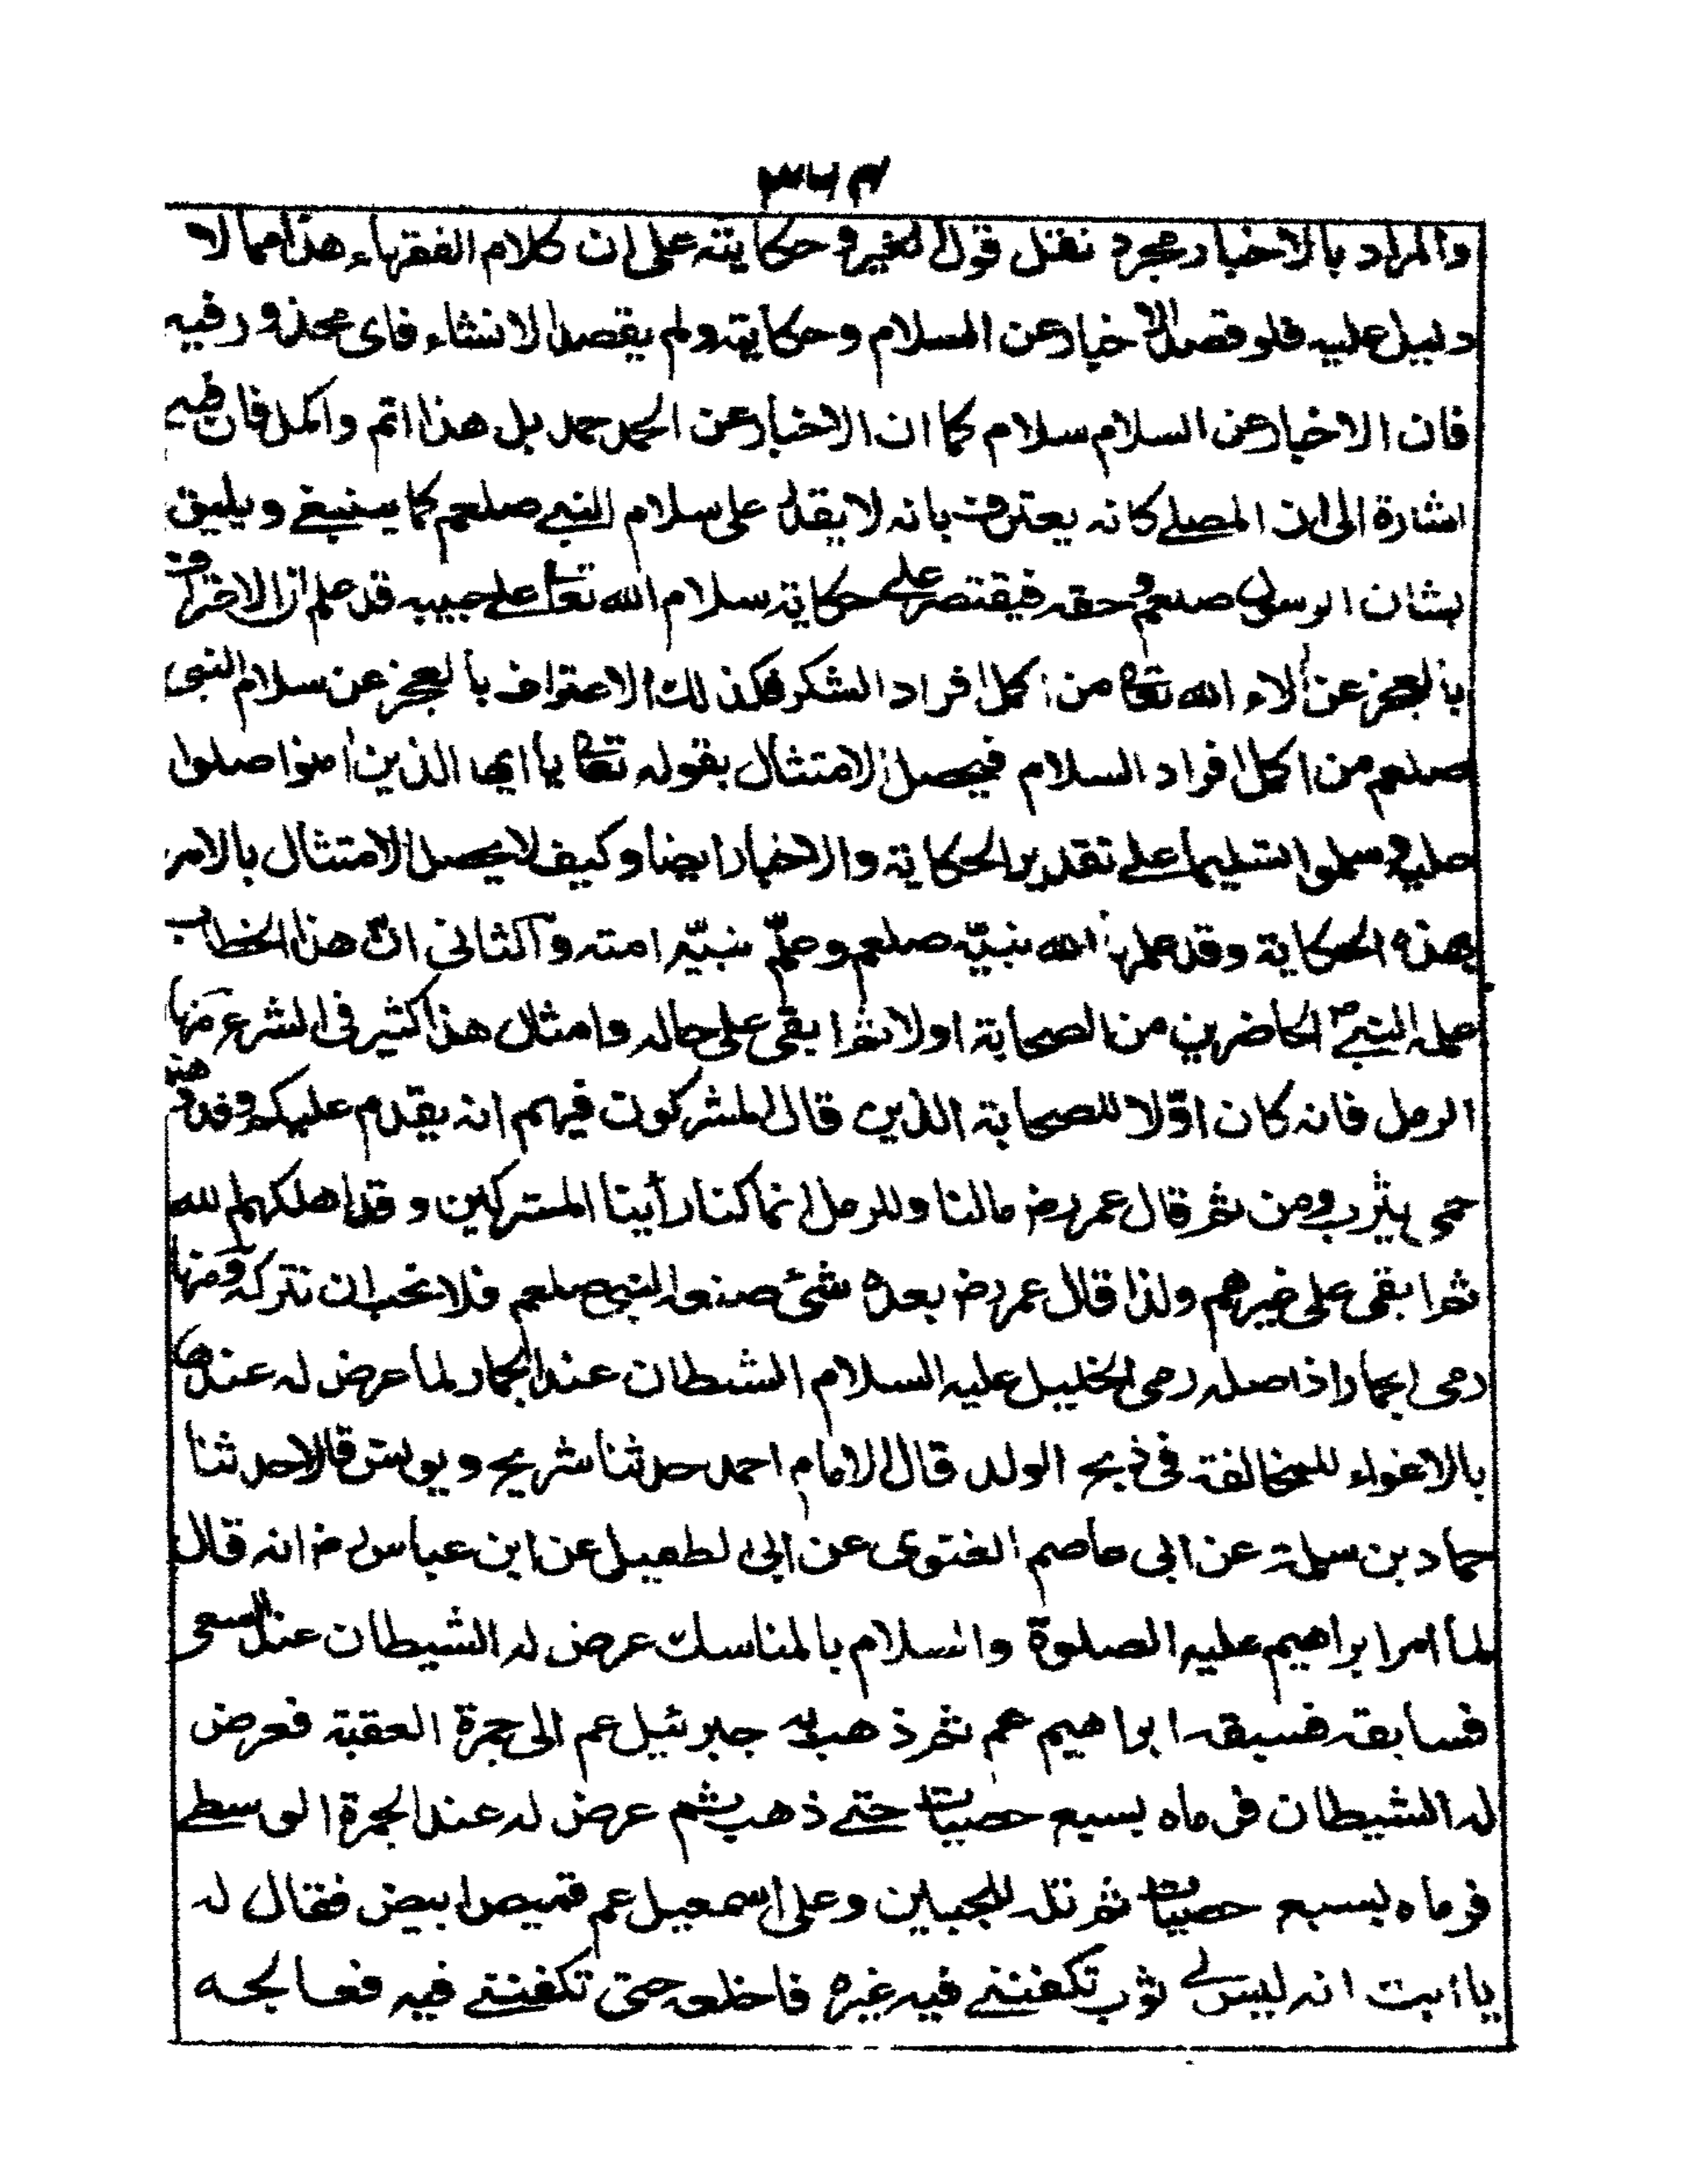 ٣٦٤
والمراد بالاخبار مجرد نقل قول الغير وحكايته على ان كلام الفقهاء هذا مما لا
دليل عليه فلو قصد الاخبار عن السلام وحكايته ولم يقصد الانشاء فاى محذور فيه
فان الاخبار عن السلام سلام كما ان الاخبار عن الحمد حمد بل هذا اتم واكمل فان فيه
اشارة الى ان المصلے كانه يعترف بانه لا يقدر على سلام النبے صلعم كما ينبغے ويليق
بشان الرسول صلعم وحقه فيقتصر علے حكاية سلام الله تعا علے حبيبه قد علم ان الاعتراف
بالعجز عن آلاء الله تعا من اكمل افراد الشكر فكذلك الاعتراف بالعجز عن سلام النبى
صلعم من اكمل افراد السلام فيحصل الامتثال بقوله تعا يا ايها الذين امنوا صلوا
عليه وسلموا تسليما علے تقدير الحكاية والاخبار ايضا وكيف لا يحصل الامتثال بالامر
بهذه الحكاية وقد علم الله نبيّه صلعم وعلّم نبيّه امته والثانى انّ هذا الخطاب
علمه النبےؐ الحاضرين من الصحابة اولا ثم ابقى على حاله وامثال هذا كثير فى الشرع منها
الرمل فانه كان اوّلا للصحابة الذين قال المشركون فيهم انه يقدم عليكم وفد وهنتهم
حمى يثرب ومن ثم قال عمر رض مالنا وللرمل انما كنا رأينا المشركين وقد اهلكهم الله
ثم ابقى على غيرهم ولذا قال عمر رض بعده شئ صنعه النبى صلعم فلا نحب ان نتركه ومنها
رمى الجمار اذ اصله رمى الخليل عليه السلام الشيطان عند الجمار لما عرض له عندها
بالاغواء للمخالفة فى ذبح الولد قال الامام احمد حدثنا شريح ويونس قالا حدثنا
حماد بن سلمة عن ابى عاصم الغنوى عن ابى لطفيل عن ابن عباس رض انه قال
لما امر ابراهيم عليه الصلوة والسلام بالمناسك عرض له الشيطان عند السعى
فسابقه فسبقه ابراهيم عم ثم ذهب به جبرئيل عم الى جمرة العقبة فعرض
له الشيطان فرماه بسبع حصيات حتے ذهب ثم عرض له عند الجمرة الوسطے
فرماه بسبع حصيات ثم تله للجبين وعلى اسمعيل عم قميص ابيض فقال له
يا ابت انه ليس لے ثوب تكفننے فيه غيره فاخلعه حتى تكفننے فيه فعالجه